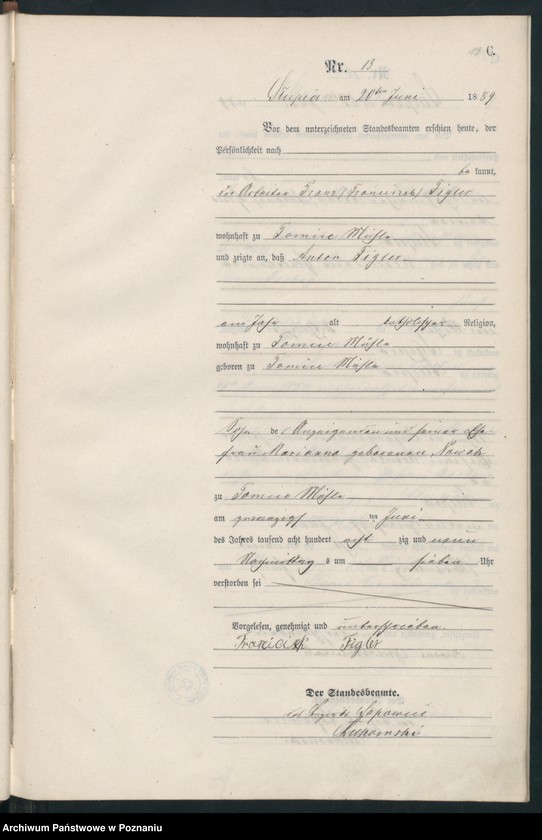 13 C.
Nr. 13
am 20ten Juni 1889
Vor dem unterzeichneten Standesbeamten erschien heute, der
Persönlichkeit nach
be kannt,
der Arbeiter Franz (Franciszek) Figler
wohnhaft zu Tomice Mühle
und zeigte an, daß Anton Figler
ein Jahr alt katholischer Religion,
wohnhaft zu Tomice Mühle
geboren zu Tomice Mühle
Sohn des Anzeigenden und seiner Ehe-
frau Marianna geborenen Nowak
zu Tomice Mühle
am zwanzigsten Juni
des Jahres tausend acht hundert acht zig und neun
Nachmittags um sieben Uhr
verstorben sei
Vorgelesen, genehmigt und unterschrieben
Franciszek Figler
Der Standesbeamte.
Archiwum Państwowe w Poznaniu